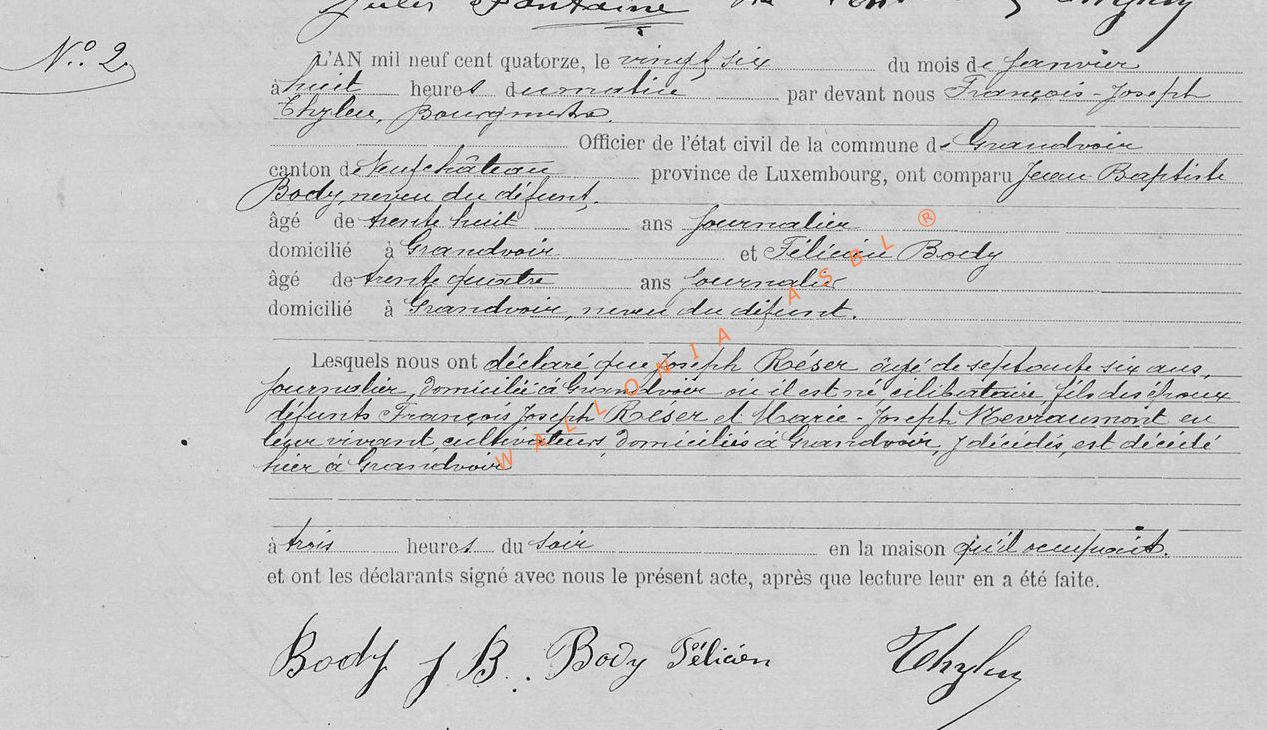 Jules Fontaine
N° 2
L'AN mil neuf cent quatorze, le vingt six du mois de Janvier
à huit heures du matin par devant nous François-Joseph
Thyleu, Bourgmestre.
Officier de l'état civil de la commune de Grandvoir
canton de Neufchâteau province de Luxembourg, ont comparu Jean Baptiste
Body, neveu du défunt,
âgé de trente huit ans Journalier
domicilié à Grandvoir et Félicien Body
âgé de trente quatre ans Journalier
domicilié à Grandvoir, neveu du défunt.
Lesquels nous ont déclaré que Joseph Réser âgé de septante six ans,
Journalier, domicilié à Grandvoir où il est né, célibataire, fils des époux
défunts François Joseph Réser et Marie-Joseph Nevraumont en
leur vivant, cultivateurs, domiciliés à Grandvoir, y décédés, est décédé
hier à Grandvoir
à trois heures du soir en la maison qu'il occupait.
et ont les déclarants signé avec nous le présent acte, après que lecture leur en a été faite.
Body J B. Body Félicien Thyleu
WALLONIA ASBL ®